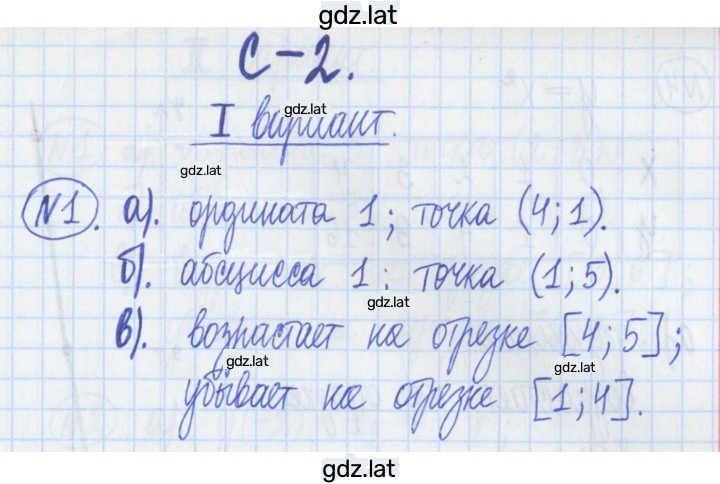 gdz.lat
С-2.
I вариант.
gdz.lat
gdz.lat
№1. а). ордината 1; точка (4;1).
б). абсцисса 1; точка (1;5).
gdz.lat
в). возрастает на отрезке [4;5];
gdz.lat
gdz.lat
убывает на отрезке [1;4].
gdz.lat